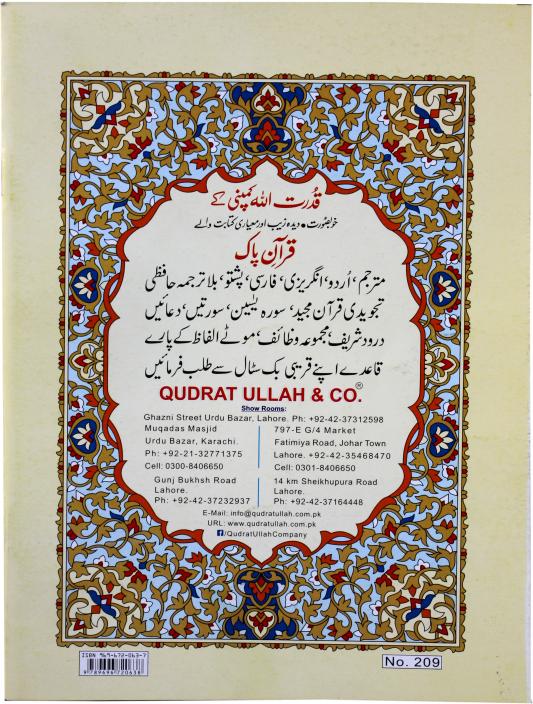 قدرت اللہ کمپنی کے
خوبصورت • دیدہ زیب اور معیاری کتابت والے
قرآن پاک
مترجم، اُردو، انگریزی، فارسی، پشتو، بلا ترجمہ حافظی
تجویدی قرآن مجید، سورہ یٰسین، سورتیں، دعائیں
درود شریف، مجموعہ وظائف، موٹے الفاظ کے پارے
قاعدے اپنے قریبی بک سٹال سے طلب فرمائیں
QUDRAT ULLAH & CO.®
Show Rooms:
Ghazni Street Urdu Bazar, Lahore. Ph: +92-42-37312598
Muqadas Masjid
Urdu Bazar, Karachi.
Ph: +92-21-32771375
Cell: 0300-8406650
797-E G/4 Market
Fatimiya Road, Johar Town
Lahore. +92-42-35468470
Cell: 0301-8406650
Gunj Bukhsh Road
Lahore.
Ph: +92-42-37232937
14 km Sheikhupura Road
Lahore.
Ph: +92-42-37164448
E-Mail: info@qudratullah.com.pk
URL: www.qudratullah.com.pk
f/QudratUllahCompany
ISBN 969-672-063-7
9 789696 720638
No. 209